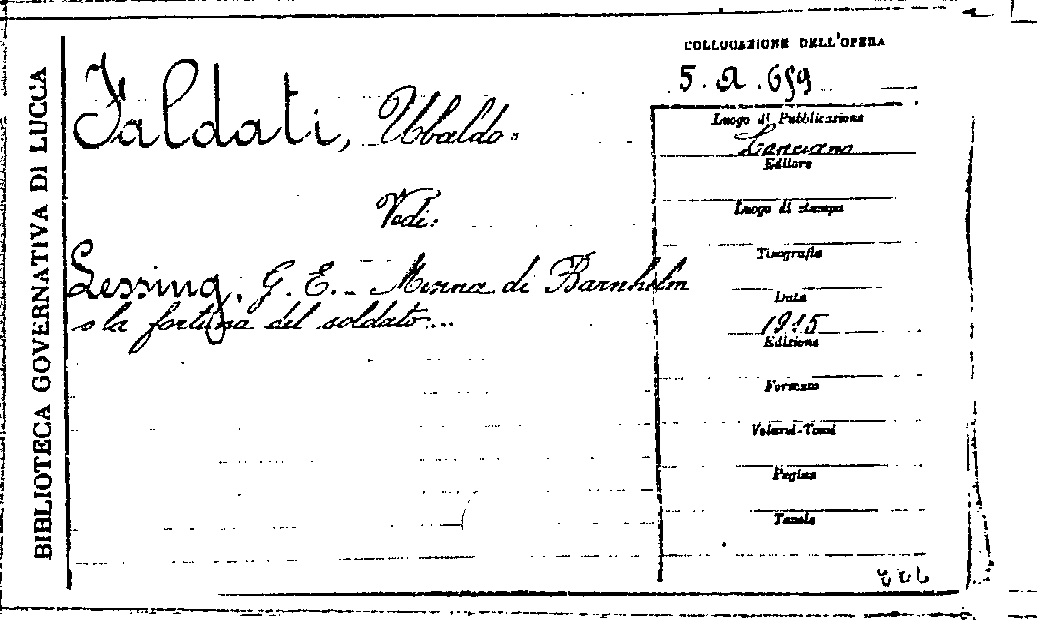 BIBLIOTECA GOVERNATIVA DI LUCCA
COLLOCAZIONE DELL'OPERA
Faldati, Ubaldo.
Vedi:
Lessing, G. E. - Minna di Barnholm
o la fortuna del soldato...
Luogo di Pubblicazione
Lanciano
Editore
Luogo di stampa
Tipografia
Data
1915
Edizione
Formato
Volumi-Tomi
Pagine
Tavole